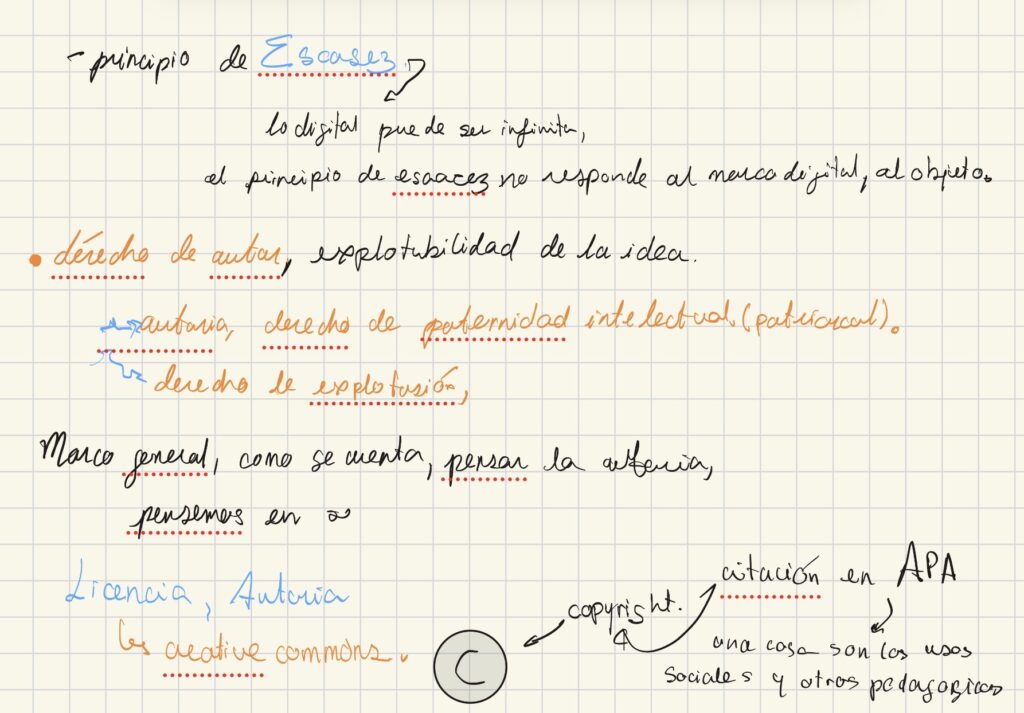 - principio de Escasez.
lo digital puede ser infinita,
el principio de esaacez no responde al marco digital, al objeto.
• dérecho de autar, explotubilidad de la idea.
autaria, derecho de paternidad intelectual (patriarcal).
derecho de explotasión,
Marco general, como se cuenta, pensar la
pensemos en
Licencia, Autoria
creative commons.
C
copyright.
citación en APA
una cosa son los usos
sociales y otros pedagogicos